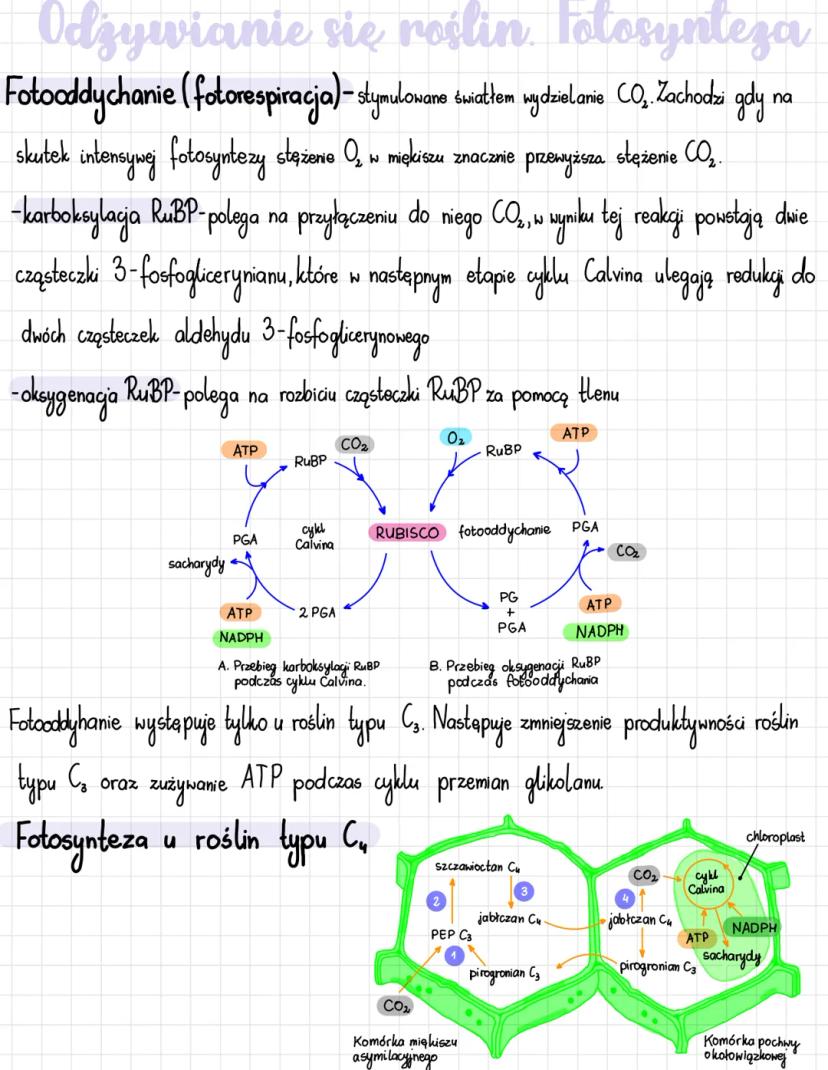 Odżywianie się roślin. Fotosynteza
Fotooddychanie (fotorespiracja)- stymulowane światłem wydzielanie CO₂. Zachodzi gdy na
skutek intensywej fotosyntezy stężenie O₂ w miękiszu znacznie przewyższa stężenie CO₂.
-karboksylacja RuBP-polega na przyłączeniu do niego CO₂, w wyniku tej reakcji powstają dwie
cząsteczki 3-fosfoglicerynianu, które w następnym etapie cyklu Calvina ulegają redukcji do
dwóch cząsteczek aldehydu 3-fosfoglicerynowego
-oksygenacja RuBP-polega na rozbiciu cząsteczki RuBP za pomocą tlenu
ATP
RuBP
CO₂
O₂
RuBP
ATP
PGA
cykl
Calvina
RUBISCO
fotooddychanie
PGA
CO₂
sacharydy
ATP
NADPH
2 PGA
PG
+
PGA
ATP
NADPH
A. Przebieg karboksylacji RuBP
podczas cyklu Calvina.
B. Przebieg oksygenacji RuBP
podczas fotooddychania
Fotooddyhanie występuje tylko u roślin typu C₃. Następuje zmniejszenie produktywności roślin
typu C₃ oraz zużywanie ATP podczas cyklu przemian glikolanu.
Fotosynteza u roślin typu C₄
chloroplast
szczawioctan C₄
2
3
jabłczan C₄
PEP C₃
1
pirogronian C₃
CO₂
CO₂
4
jabłczan C₄
pirogronian C₃
cykl
Calvina
ATP
NADPH
sacharydy
Komórka miękiszu
asymilacyjnego
Komórka pochwy
okołowiązkowej